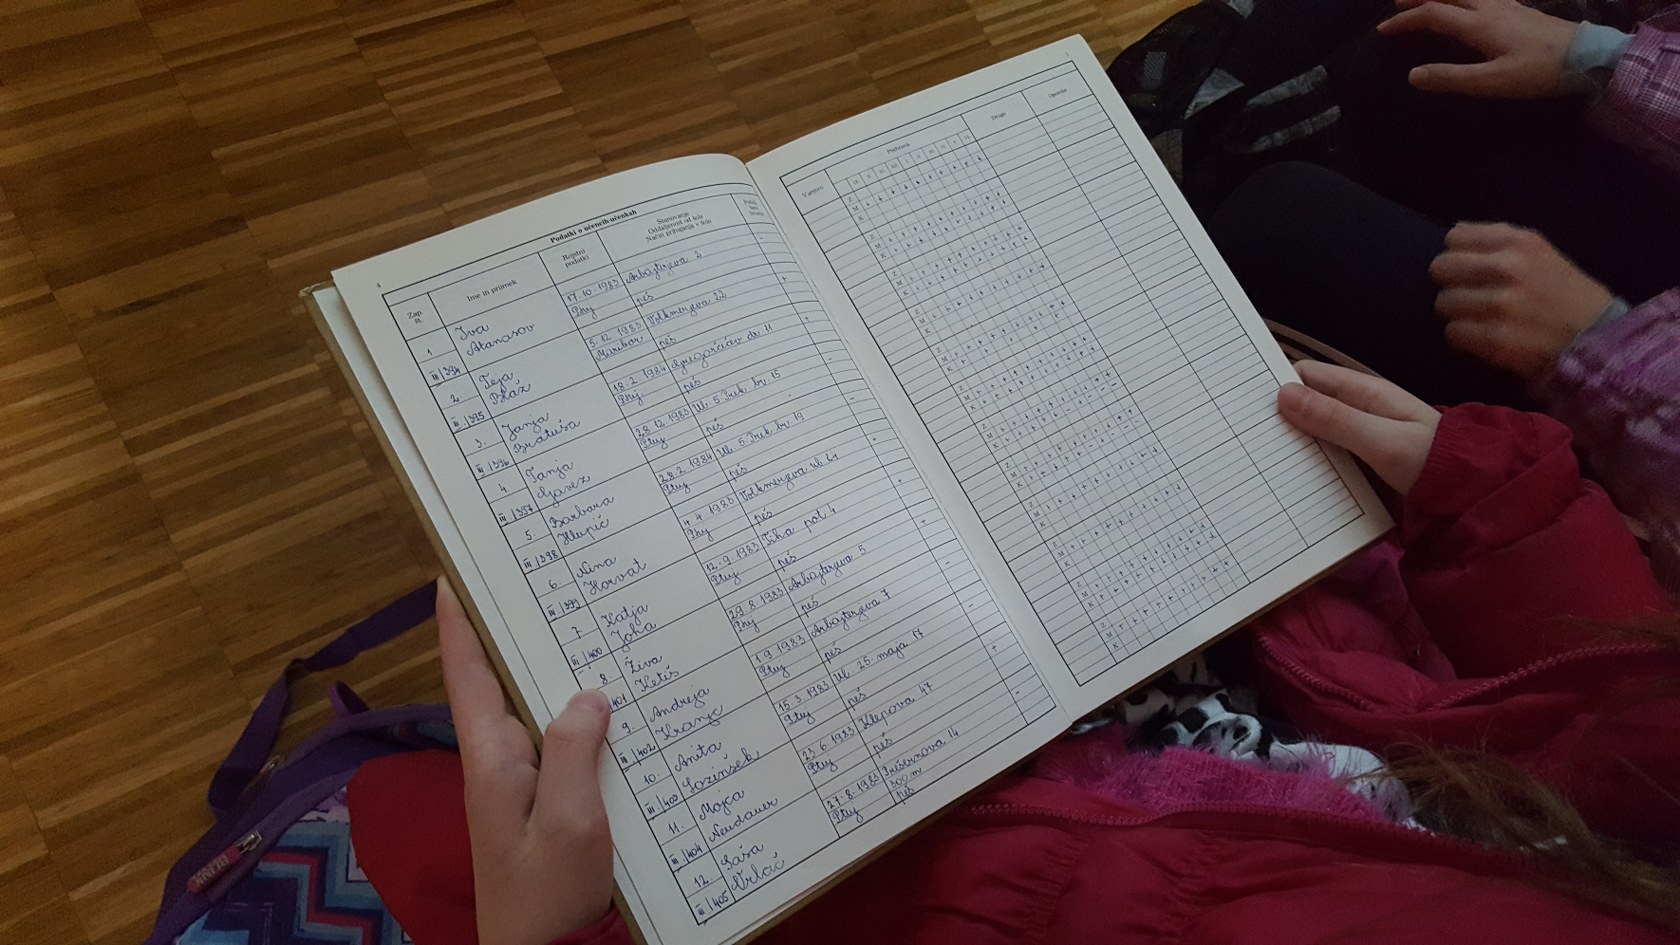 4
Podatki o učencih-učenkah
Zap. št.
Ime in priimek
Rojstni podatki
Stanovanje
Oddaljenost od šole
Način prihajanja v šolo
1.
III/394
Iva
Atanasov
17. 10. 1983
Ptuj
Arbajterjeva 2
peš
-
2.
III/395
Teja
Blaž
5. 12. 1983
Maribor
Volkmerjeva 22
peš
+
3.
III/396
Janja
Bratuša
18. 2. 1984
Ptuj
Gregorčičev dr. 11
peš
4.
III/397
Tanja
28. 12. 1983
Ptuj
Ul. 5. Prek. br. 15
peš
-
5.
III/398
Barbara
Hlupić
28. 2. 1984
Ptuj
Ul. 5. Prek. br. 19
peš
-
6.
III/399
Nina
Horvat
4. 4. 1983
Ptuj
Volkmerjeva ul.
peš
7.
III/400
Katja
Joha
12. 9. 1983
Ptuj
Tiha pot 4
peš
8.
401
Živa
Ketiš
29. 8. 1983
Ptuj
Arbajterjeva 5
peš
+
9.
III/402
Andreja
Kranjc
1. 9. 1983
Ptuj
Arbajterjeva 7
peš
-
10.
Anita
Lozinšek
15. 3. 1983
Ptuj
Ul. 25. maja 17
peš
-
11.
III/404
Mojca
Neudauer
23. 6. 1983
Ptuj
Klepova 47
peš
+
12.
III/405
Saša
Vrbčič
27. 8. 1983
Ptuj
Prešernova 14
500 m
peš
-
Varstvo
Prehrana
Drugo
Opombe